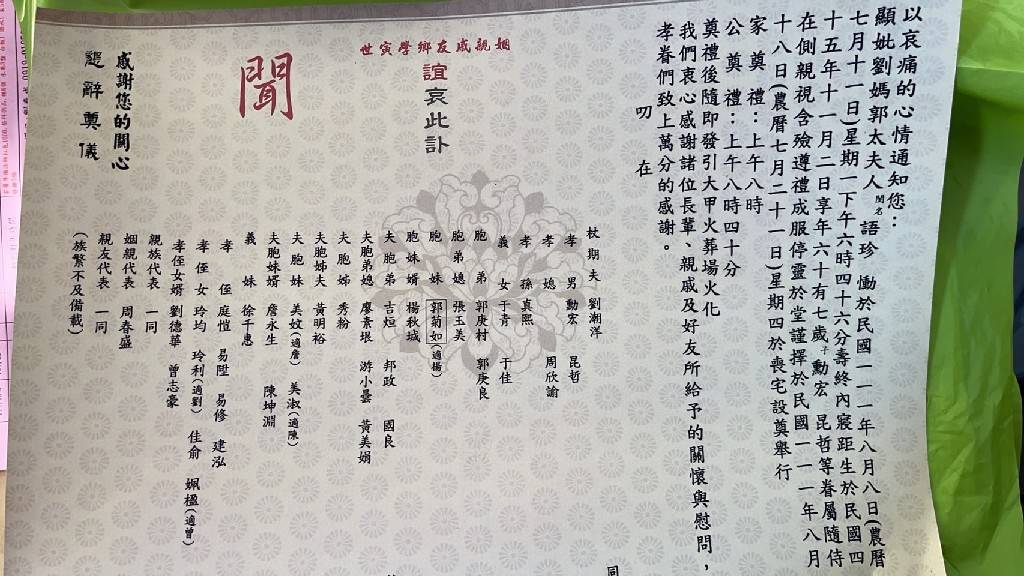 以哀痛的心情通知您：
顯妣劉媽郭太夫人 閨名 語珍 慟於民國一一一年八月八日(農曆
七月十一日)星期一下午六時四十六分壽終內寢距生於民國四
十五年十一月二日享年六十有七歲 子 勳宏 昆哲等眷屬隨侍
在側親視含殮遵禮成服停靈於堂謹擇於民國一一一年八月
十八日(農曆七月二十一日)星期四於喪宅設奠舉行
家奠禮：上午八時
公奠禮：上午八時四十分
奠禮後隨即發引大甲火葬場火化
我們衷心感謝諸位長輩、親戚及好友所給予的關懷與慰問，
孝眷們致上萬分的感謝。
叨 在
姻親戚友鄉學寅世
誼哀此訃
聞
杖期夫 劉潮洋
孝男 勳宏 昆哲
孝媳 周欣諭
孝孫 真熙
義女 于青 于佳
胞弟 郭庚村 郭庚良
胞弟媳 張玉美
胞妹 郭菊如(適楊)
胞妹婿 楊秋城
夫胞弟 吉烜 邦政 國良
夫胞弟媳 廖素垠 游小曇 黃美娟
夫胞姊 秀粉
夫胞姊夫 黃明裕
夫胞妹 美妏(適詹) 美淑(適陳)
夫胞妹婿 詹永生 陳坤淵
義妹 徐千惠
孝侄 庭愷 易陞 易修 建泓
孝侄女 玲均 玲利(適劉) 佳俞 姵楹(適曾)
孝侄女婿 劉德華 曾志豪
親族代表 一同
姻親代表 周春盛
親友代表 一同
(族繁不及備載)
感謝您的關心
懇辭奠儀